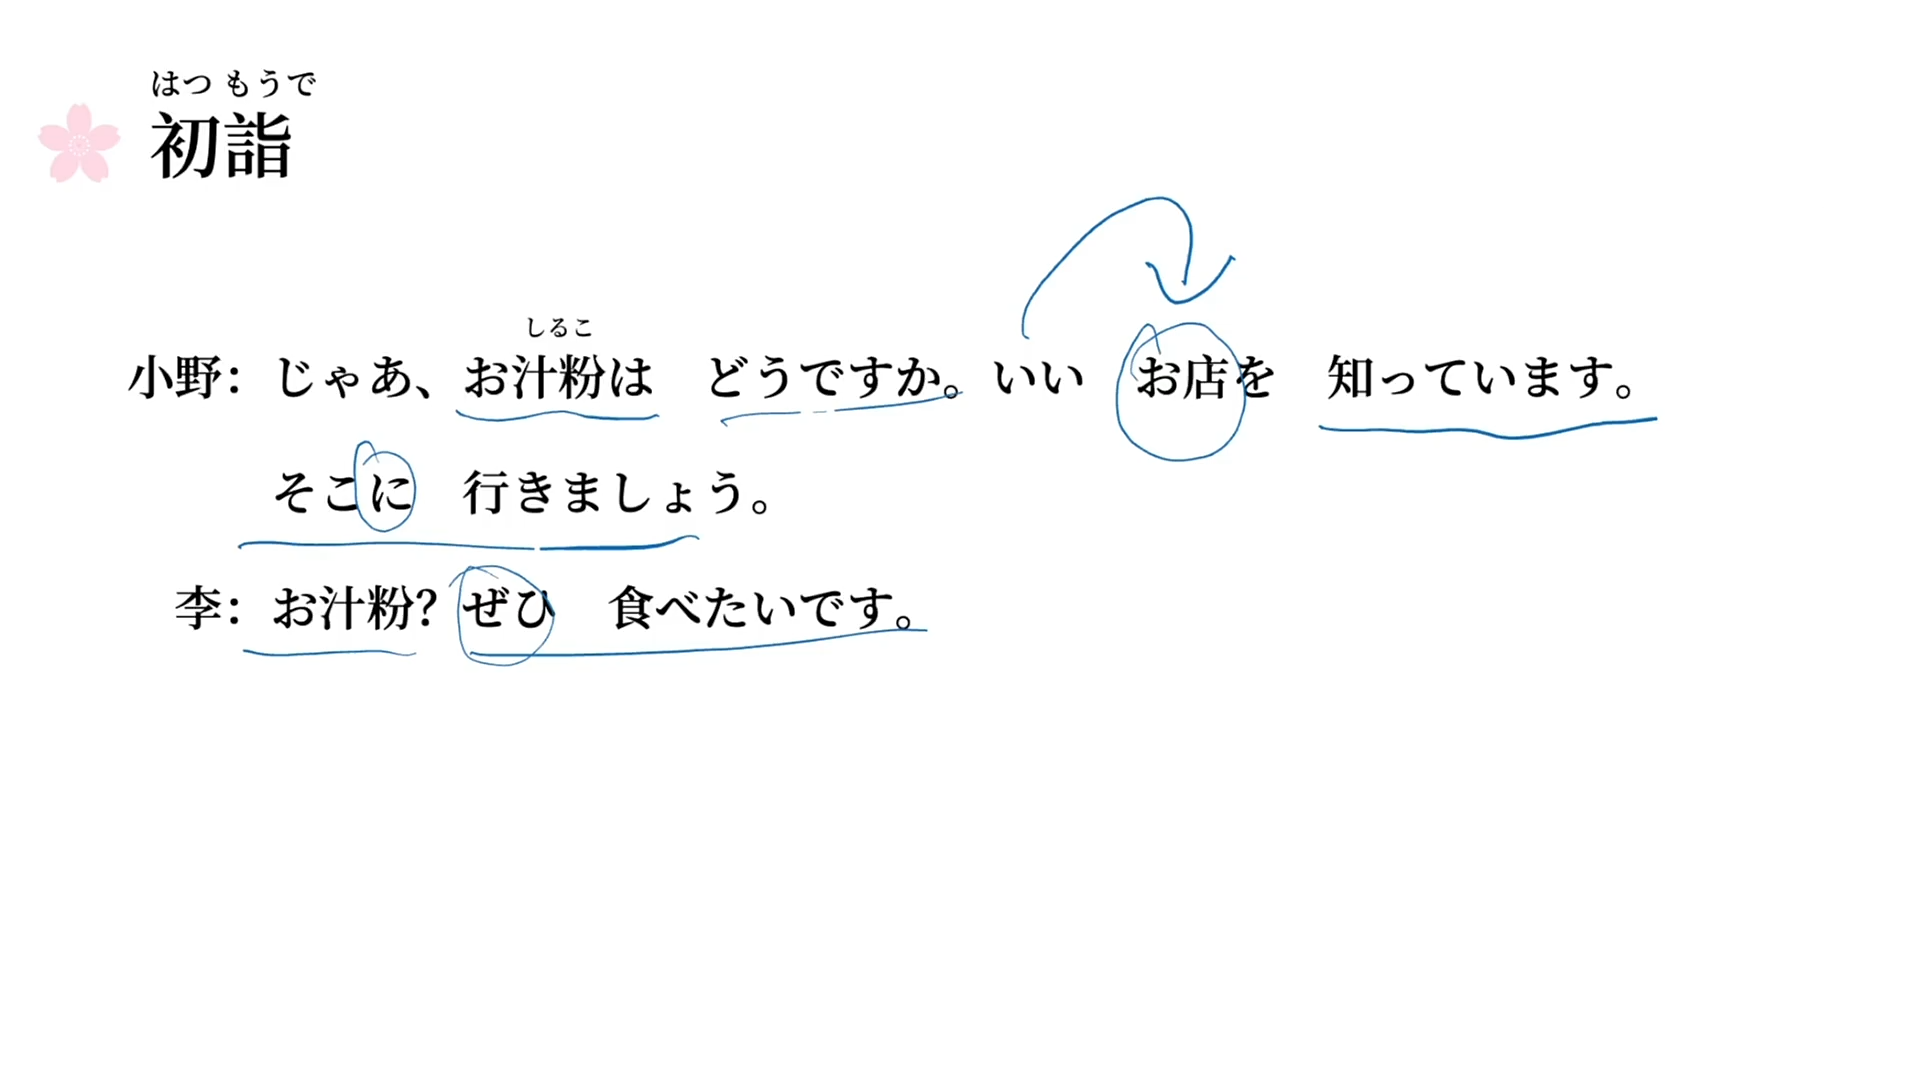 はつ もうで
初詣
しるこ
小野：じゃあ、お汁粉は　どうですか。いい　お店を　知っています。
そこに　行きましょう。
李：お汁粉？ぜひ　食べたいです。